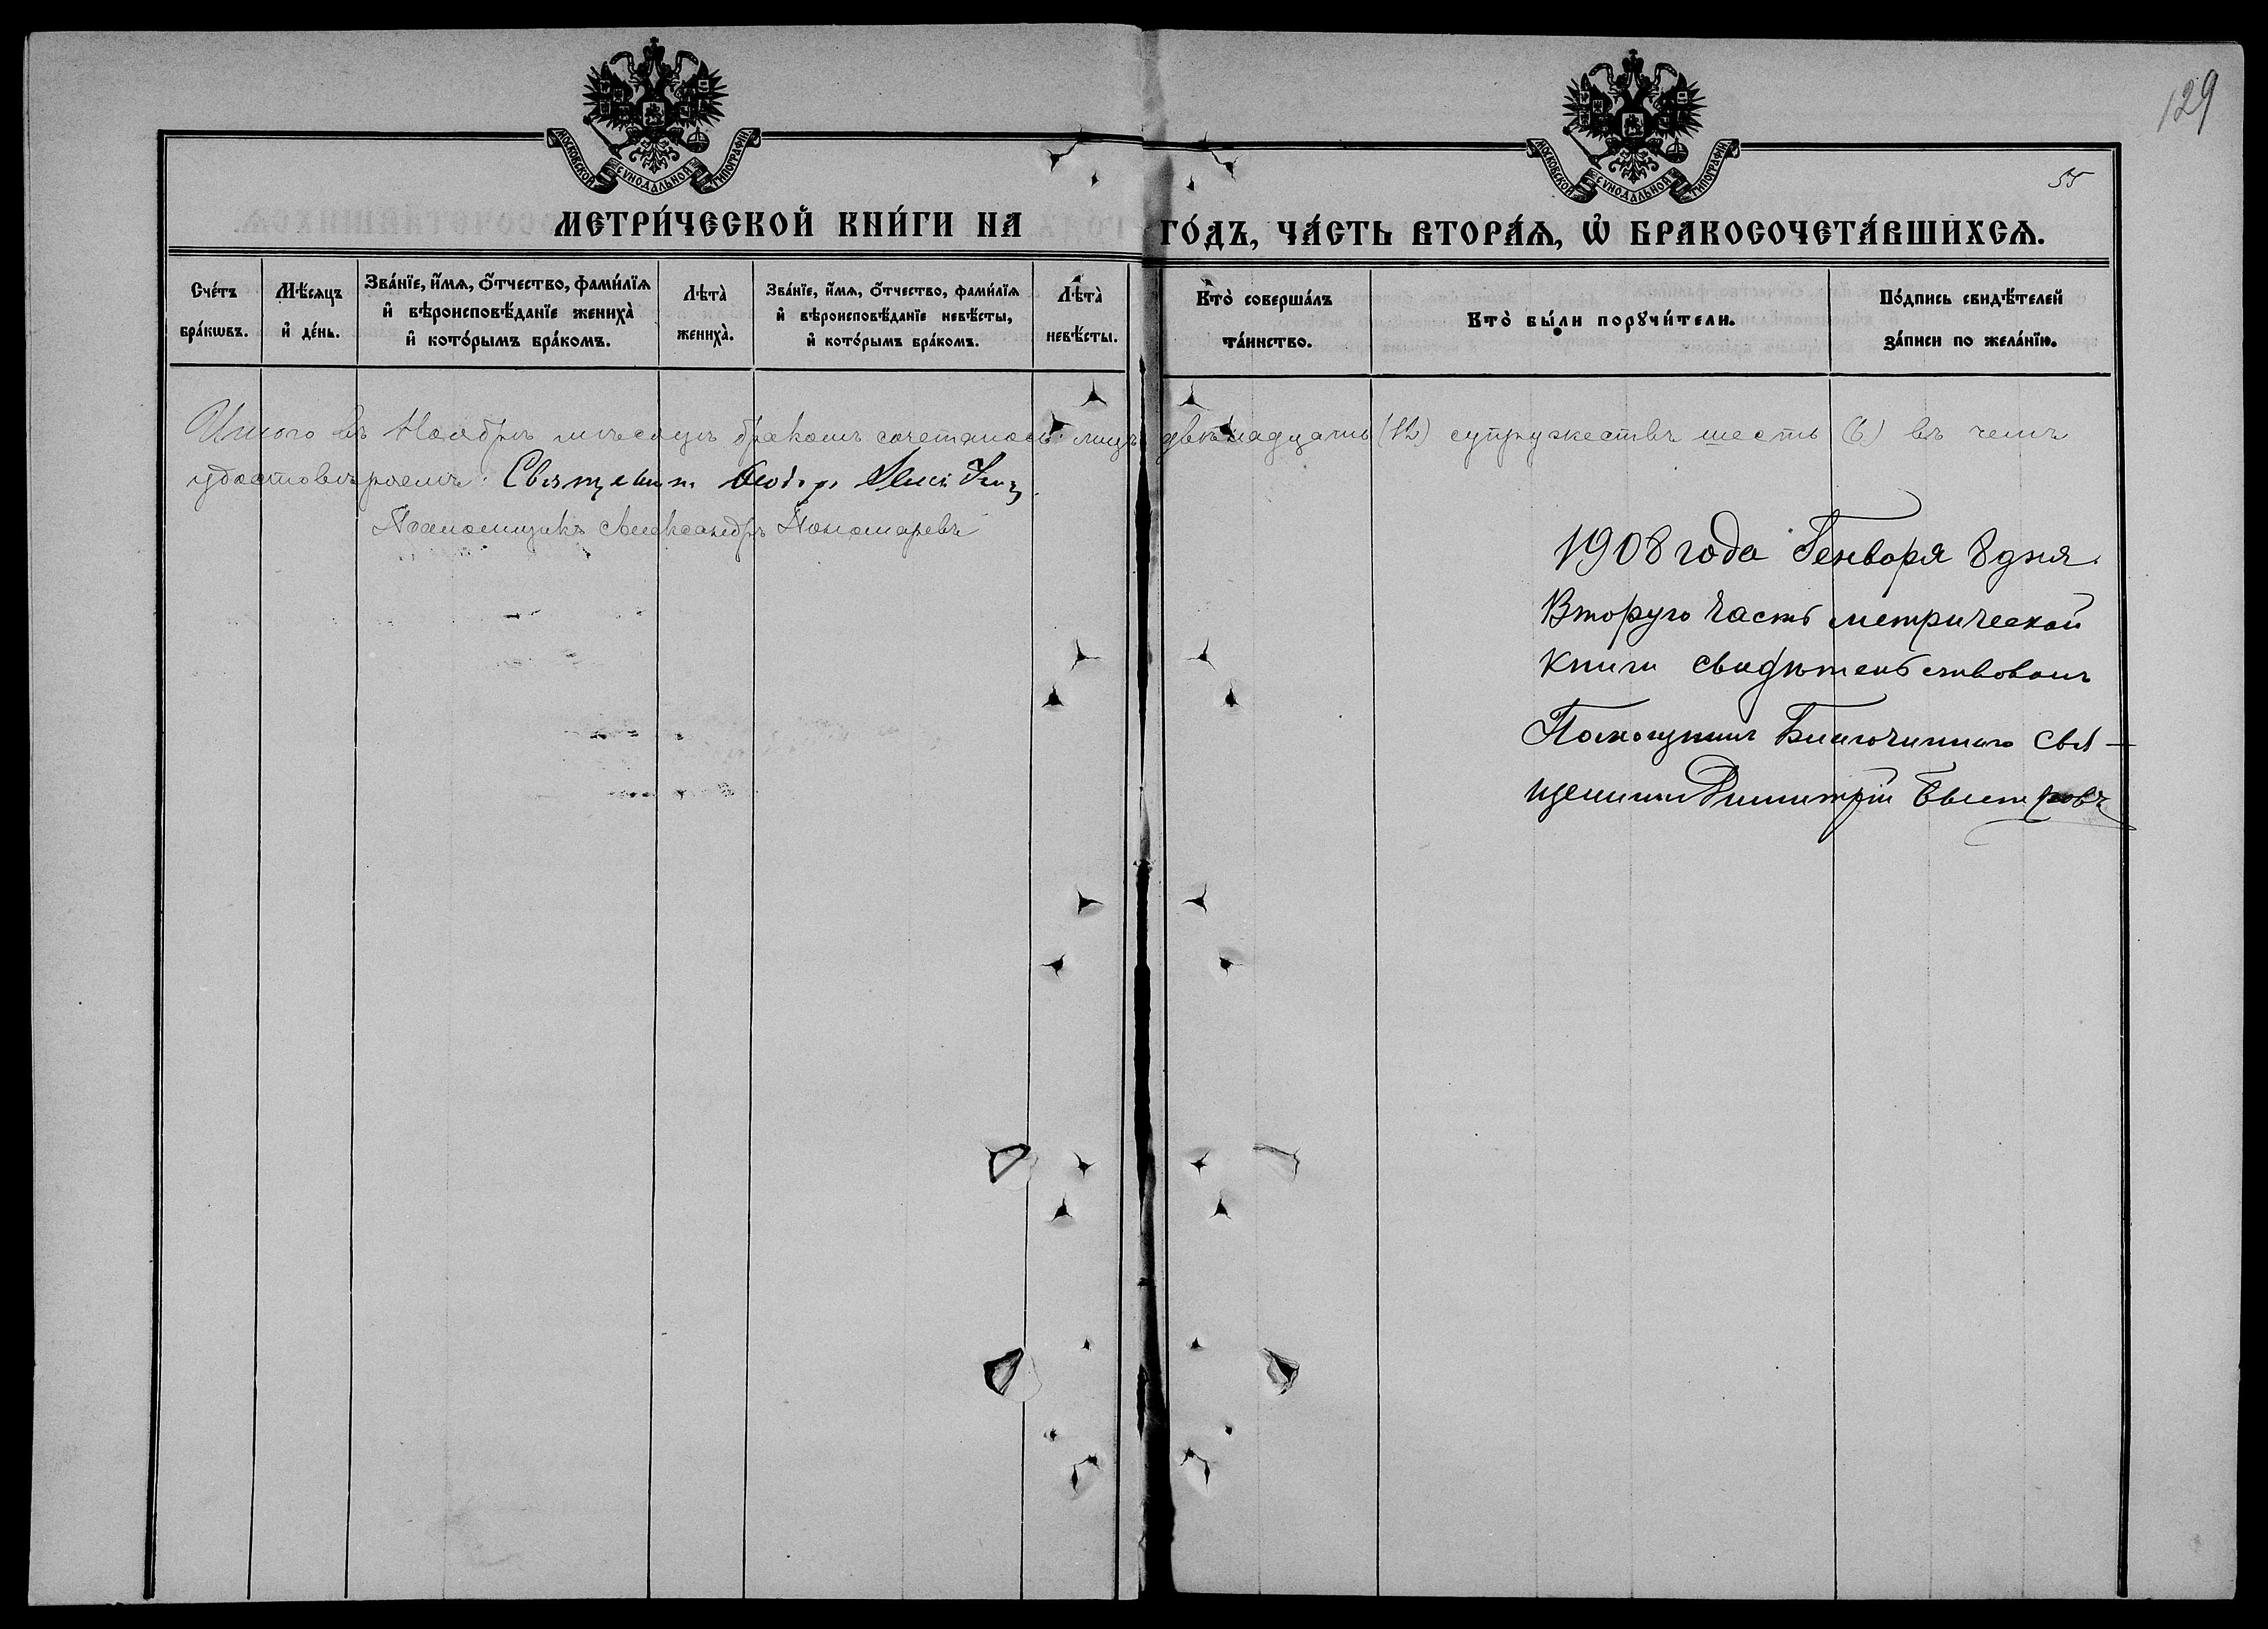 129
55
МОСКОВСКОЙ СѴНОДАЛЬНОЙ ТИПОГРАФІИ
МОСКОВСКОЙ СѴНОДАЛЬНОЙ ТИПОГРАФІИ
МЕТРИ́ЧЕСКОЙ КНИ́ГИ НА ГО́ДЪ, ЧА́СТЬ ВТОРА́Ѧ, Ѡ҆ БРАКОСОЧЕТА́ВШИХСѦ.
Сче́тъ бра́кѡвъ.
Мѣ́сѧцъ и҆ де́нь.
Зва́нїе, и҆́мѧ, ѻ҆́тчество, фами́лїѧ и҆ вѣроисповѣ́данїе жениха̀ и҆ кото́рымъ бра́комъ.
Лѣта̀ жениха̀.
Зва́нїе, и҆́мѧ, ѻ҆́тчество, фами́лїѧ и҆ вѣроисповѣ́данїе невѣ́сты, и҆ кото́рымъ бра́комъ.
Лѣта̀ невѣ́сты.
Кто̀ соверша́лъ та́инство.
Кто̀ бы́ли порꙋчи́тели.
По́дпись свидѣ́телей за́писи по жела́нїю.
Итого въ Ноябрѣ мѣсяцѣ бракомъ сочеталось: лицъ двѣнадцать (12) супружествъ шесть (6) въ чемъ
удостовѣряемъ: Священн. Ѳеодоръ
Псаломщикъ Александръ Пономаревъ
1908 года Генваря 8 дня
Вторую часть метрической
книги свидѣтельствовалъ
Помощникъ Благочиннаго свя-
щенникъ Димитрій Быстровъ